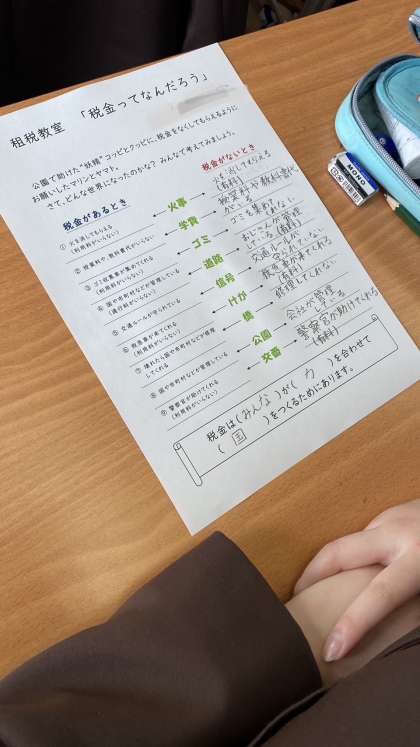 租税教室 「税金ってなんだろう」
公園で助けた“妖精”コッピとクッピに、税金をなくしてもらえるように
お願いしたマリンとヤマト。
さて、どんな世界になったのかな？ みんなで考えてみましょう。
税金があるとき
税金がないとき
① 火を消してもらえる
（利用料がいらない）
火事
火を消してもらえる
（有料）
② 授業料や、教科書代がいらない
学費
授業料や教科書代
がいる
③ ゴミ収集車が集めてくれる
（利用料がいらない）
ゴミ
ゴミを集め
くれない
④ 国や市町村などが管理している
（通行料がいらない）
道路
おじさんが管理
している（有料）
⑤ 交通ルールが守られている
信号
交通ルールが
守られていない
⑥ 救急車が来てくれる
（利用料がいらない）
けが
救急車が来てくれる
（有料）
⑦ 壊れたら国や市町村などが修理
してくれる
橋
修理してくれない
⑧ 国や市町村などが管理している
公園
会社が管理
している
⑨ 警察官が助けてくれる
（利用料がいらない）
交番
警察官が助けてくれる
（有料）
税金は（みんな）が（ 力 ）を合わせて
（ 国 ）をつくるためにあります。
MONO